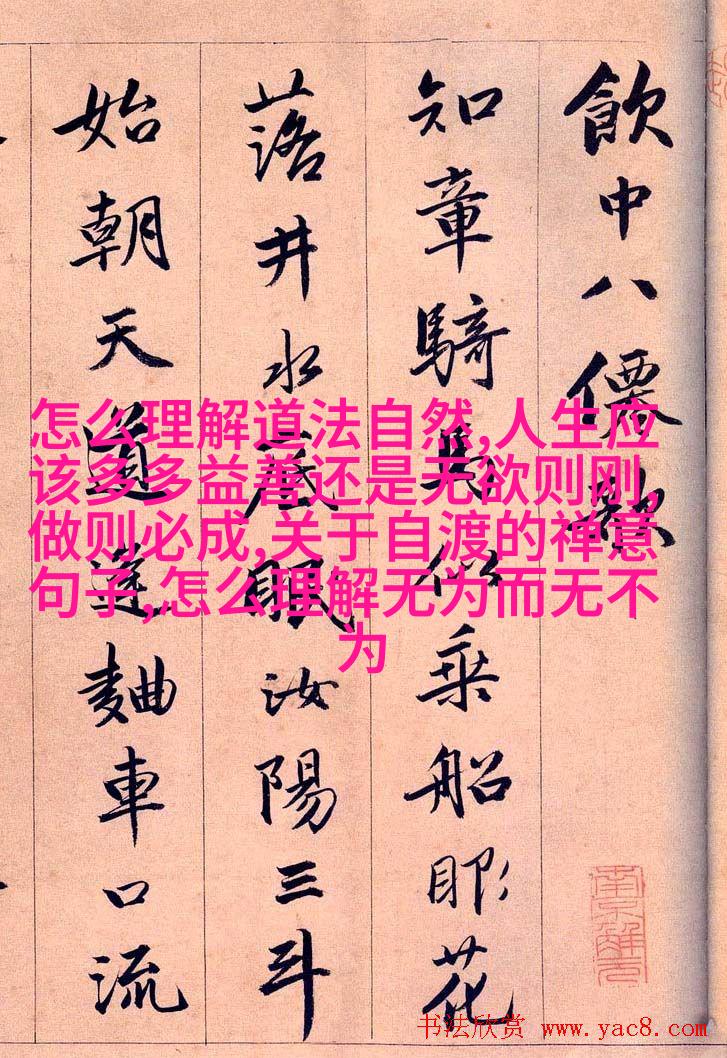 飲中八僊歌
知章騎馬似乗船眼花
落井水底眠汝陽三斗
始朝天道逢麯車口流
怎么理解道法自然,人生应
该多多益善还是无欲则刚,
做则必成,关于自渡的禅意
句子,怎么理解无为而无不
为
南京解元
书法欣赏 www.yac8.com